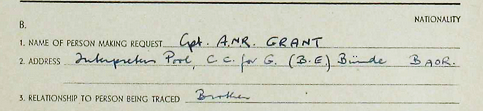 NATIONALITY
B.
1. NAME OF PERSON MAKING REQUEST Cpt. A.N.R. GRANT
2. ADDRESS Interpreters Pool, C.C. for G. (B.E) Bünde BAOR.
3. RELATIONSHIP TO PERSON BEING TRACED Brother